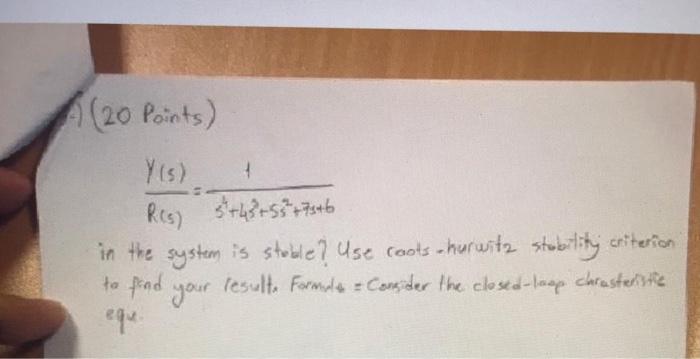 (20 Points)
Y(s) / R(s) = 1 / s⁴+4s³+5s²+7s+6
in the system is stable? Use roots-hurwitz stability criterion
to find your result. Formula = Consider the closed-loop chrasteristic
equ.